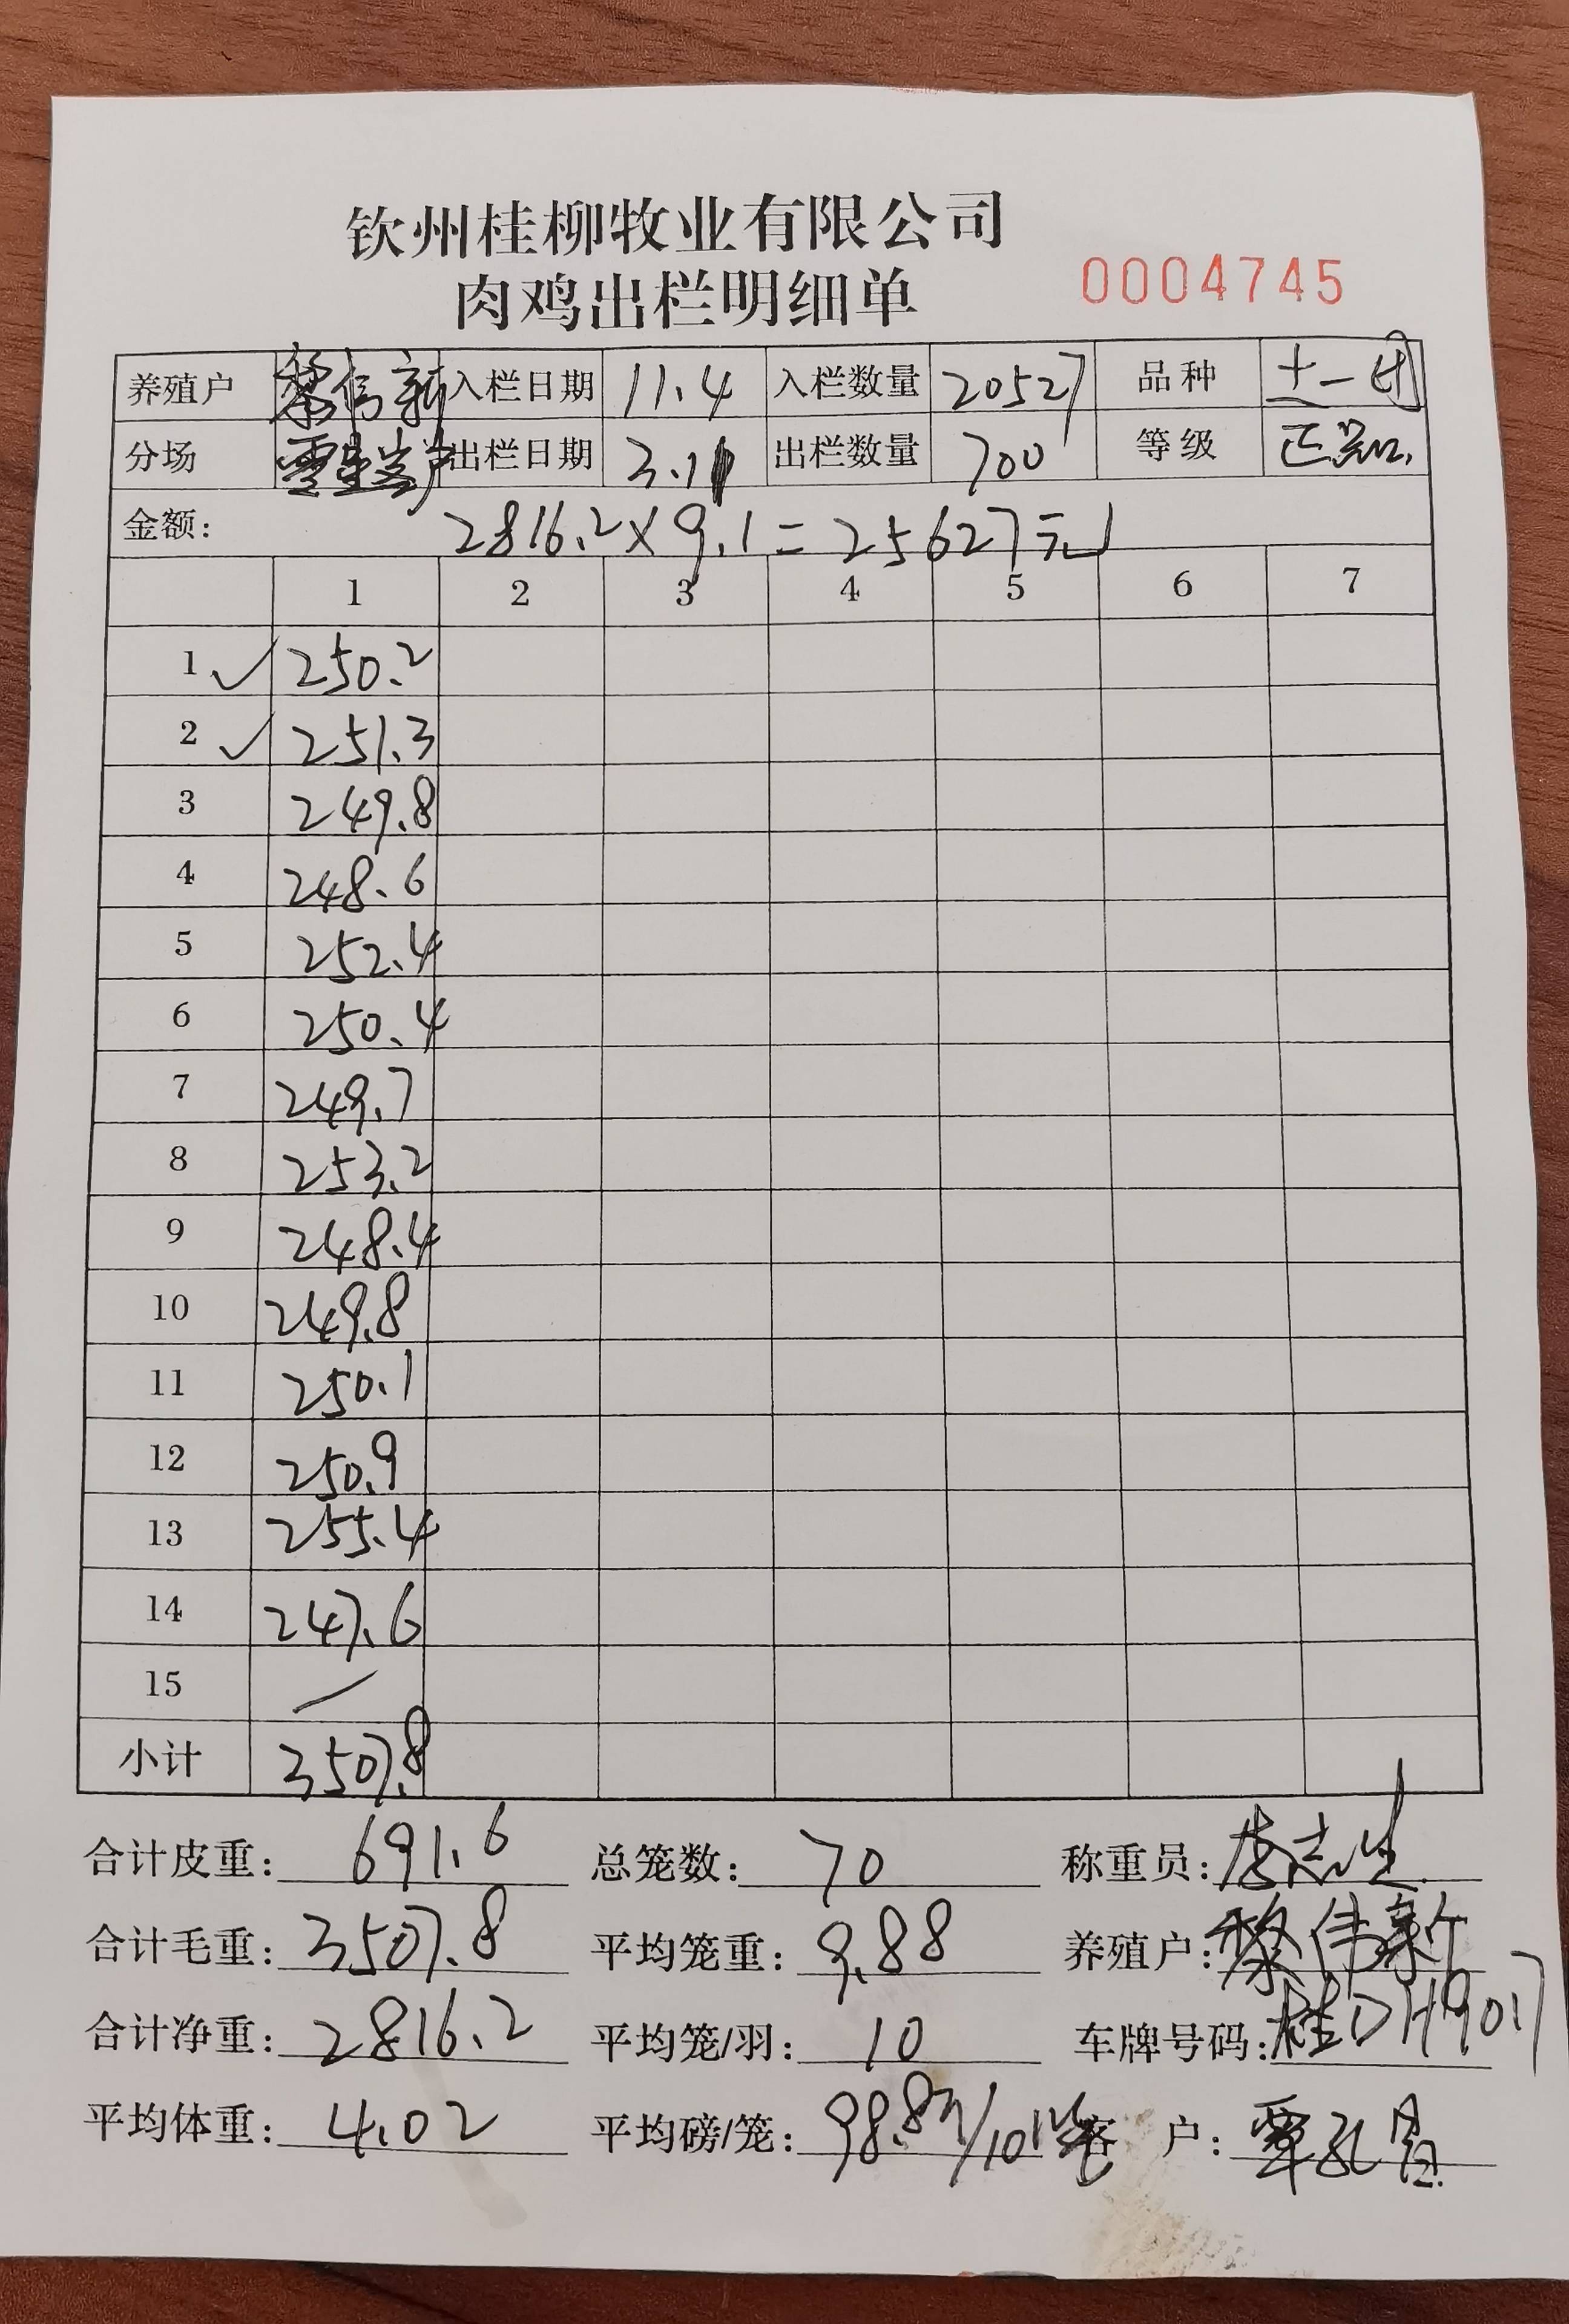 钦州桂柳牧业有限公司
肉鸡出栏明细单 0004745
养殖户 黎伟新 入栏日期 11.4 入栏数量 20527 品种 土一
分场 出栏日期 3.11 出栏数量 700 等级 正品
金额: 2816.2×9.1=25627元
1 2 3 4 5 6 7
1 ✓ 250.2
2 ✓ 251.3
3 249.8
4 248.6
5 252.4
6 250.4
7 249.7
8 253.2
9 248.4
10 249.8
11 250.1
12 250.9
13 255.4
14 247.6
15 /
小计 3507.8
合计皮重: 691.6 总笼数: 70 称重员: 志生
合计毛重: 3507.8 平均笼重: 9.88 养殖户: 黎伟新
合计净重: 2816.2 平均笼/羽: 10 车牌号码: 桂DH9017
平均体重: 4.02 平均磅/笼: 98.8 /10 客 户: 覃